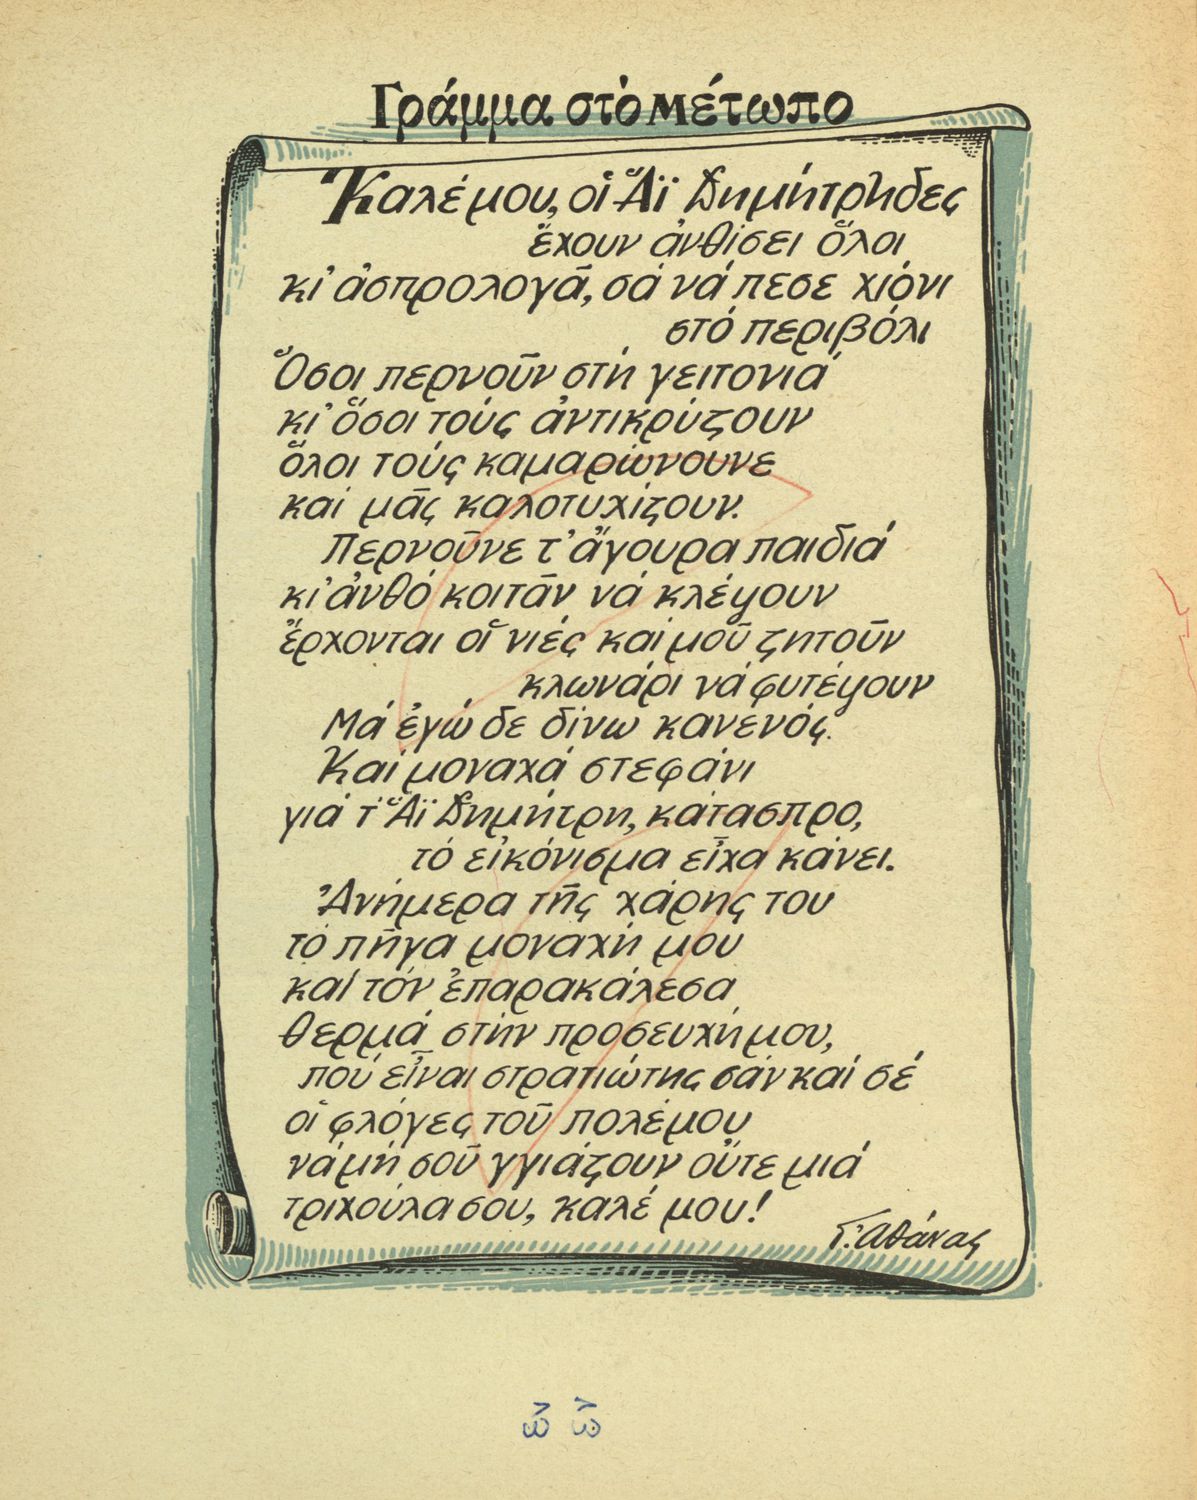 Γράμμα στὸ μέτωπο
Καλέ μου, οἱ Ἅϊ Δημήτρηδες
ἔχουν ἀνθίσει ὅλοι
κι' ἀσπρολογᾶ, σά νά πεσε χιόνι
στό περιβόλι
Ὅσοι περνοῦν στή γειτονιά
κι' ὅσοι τούς ἀντικρύζουν
ὅλοι τούς καμαρώνουνε
καί μᾶς καλοτυχίζουν.
Περνοῦνε τ' ἄγουρα παιδιά
κι' ἀνθό κοιτᾶν νά κλέψουν
ἔρχονται οἱ νιές καί μοῦ ζητοῦν
κλωνάρι νά φυτέψουν
Μά ἐγώ δε δίνω κανενός.
Καί μοναχά στεφάνι
γιά τ' Ἅϊ Δημήτρη, κάτασπρο,
τό εἰκόνισμα εἶχα κάνει.
Ἀνήμερα τῆς χάρης του
τό πῆγα μοναχή μου
καί τόν ἐπαρακάλεσα
θερμά στήν προσευχή μου,
πού εἶναι στρατιώτης σάν καί σέ
οἱ φλόγες τοῦ πολέμου
νά μή σοῦ γγιάζουν οὔτε μιά
τριχούλα σου, καλέ μου!
Γ. Αθάνας